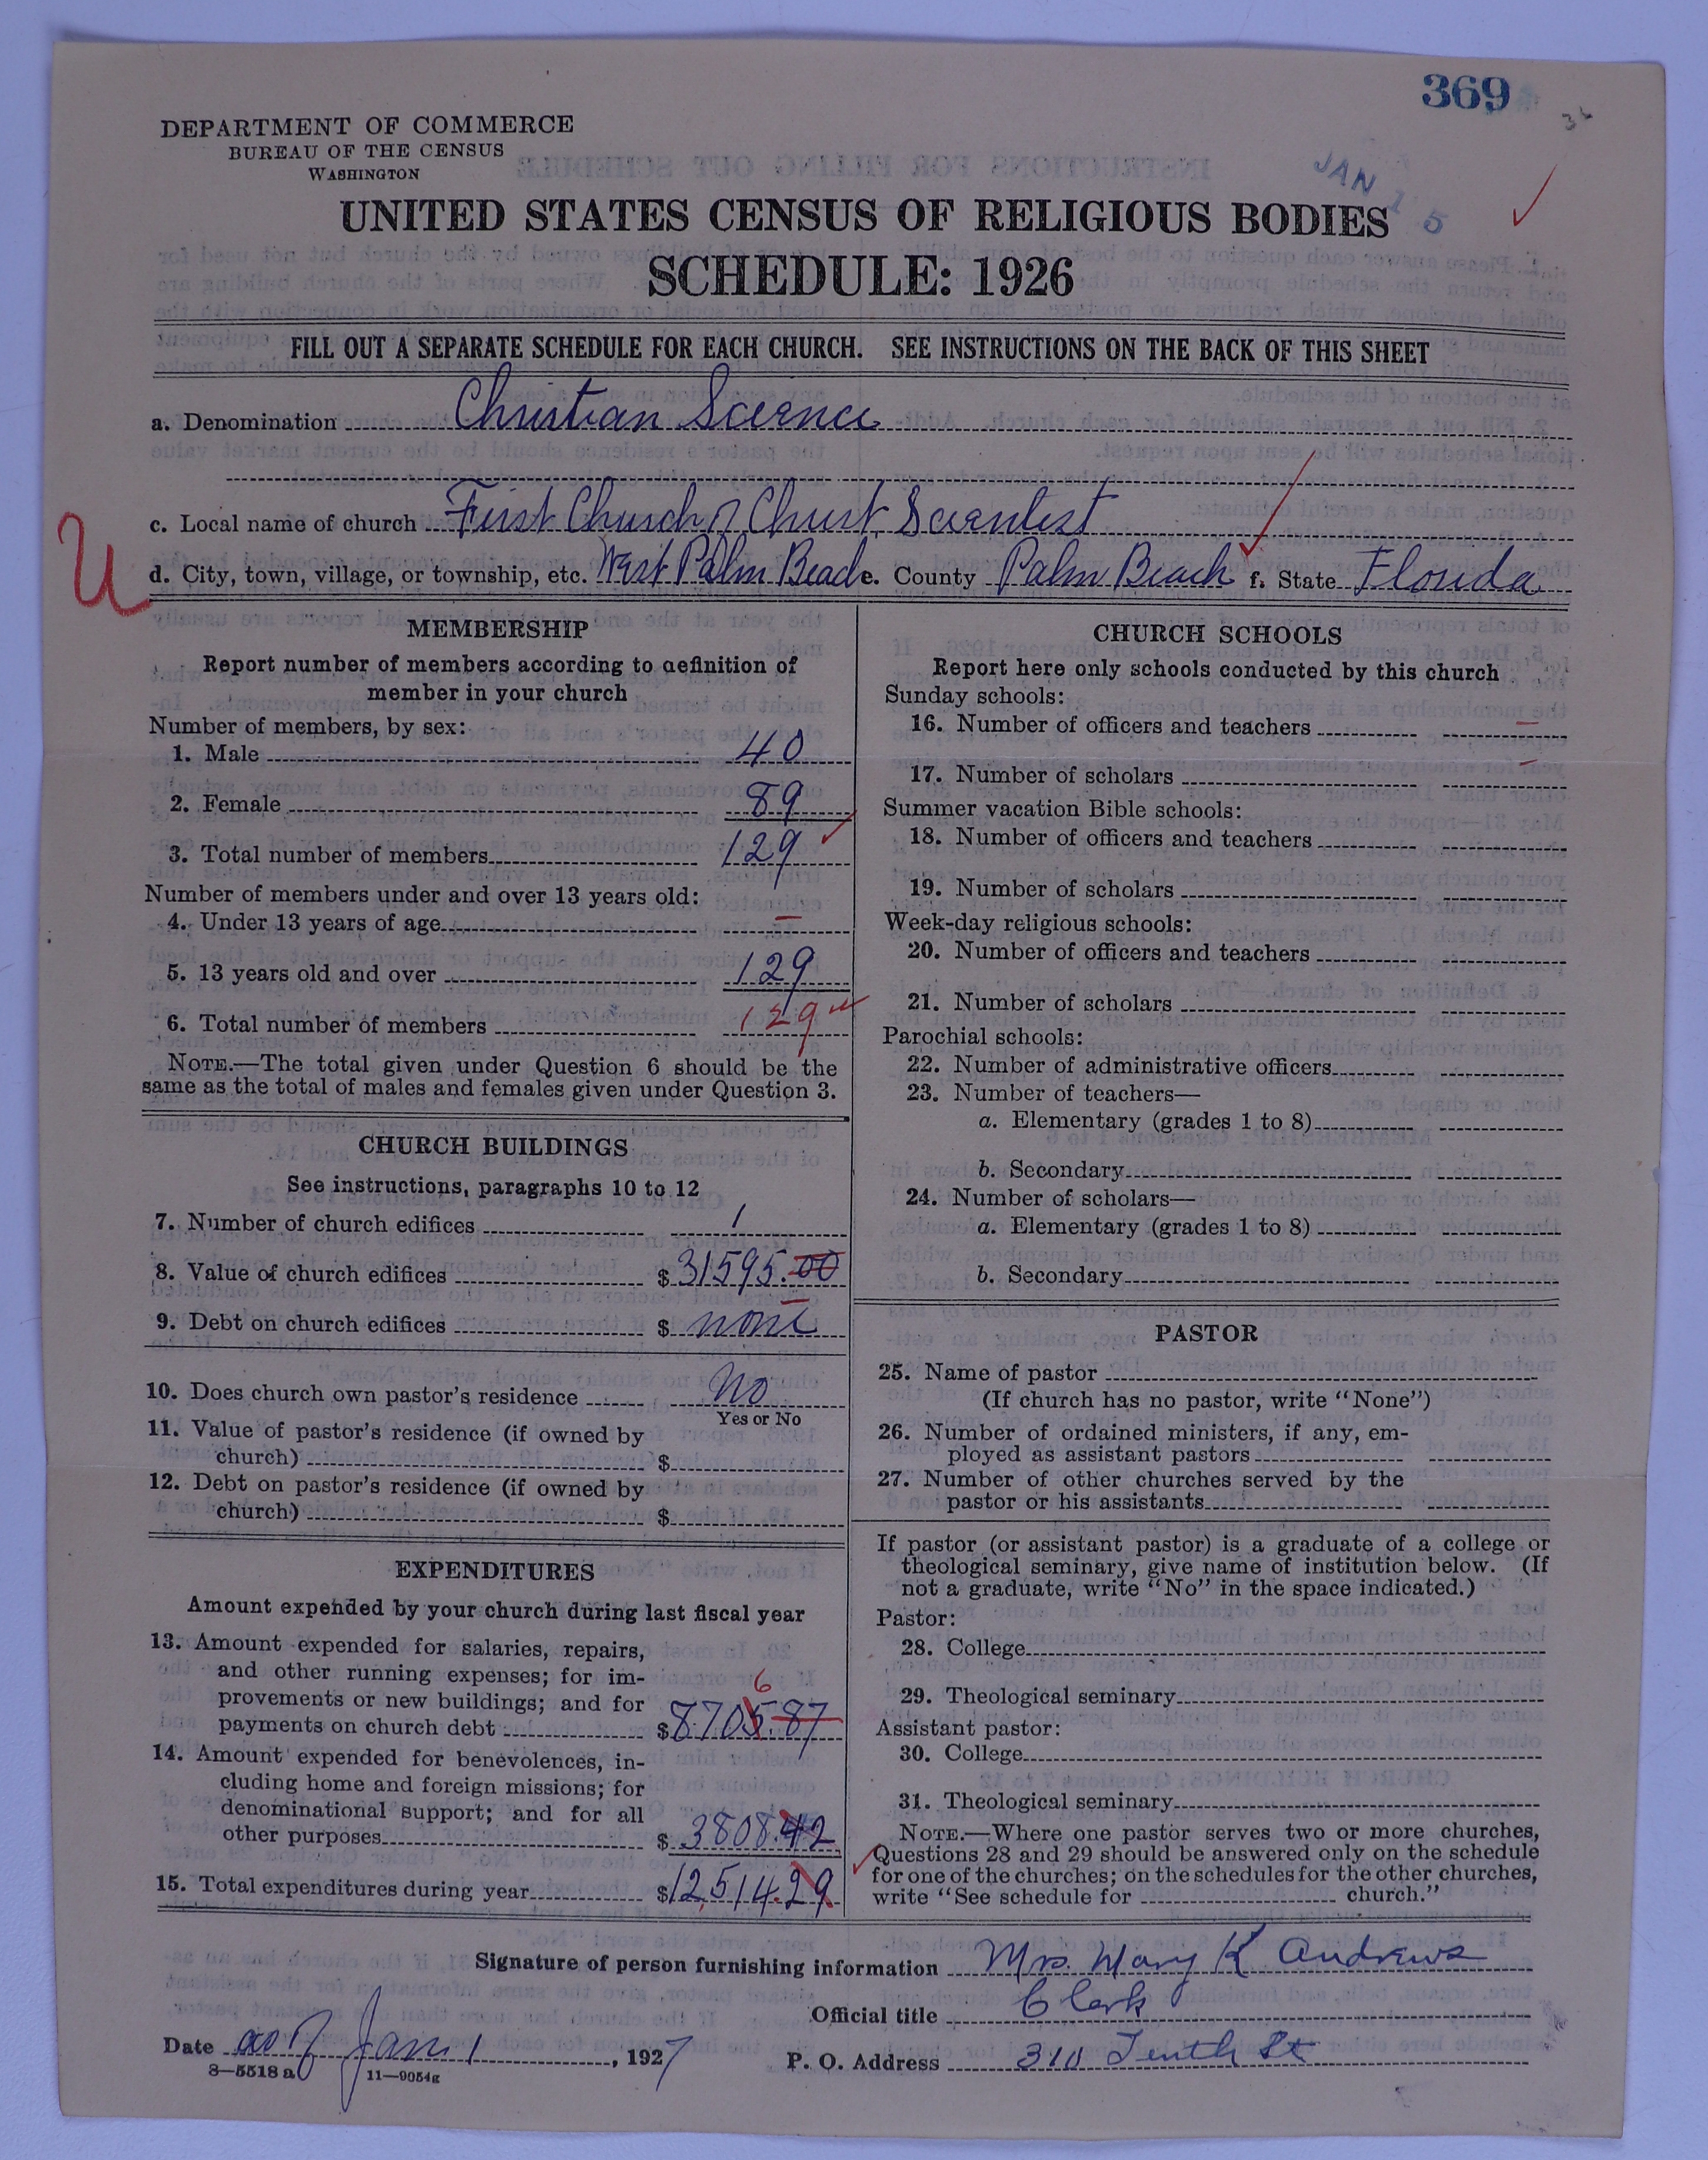 369
36
DEPARTMENT OF COMMERCE
BUREAU OF THE CENSUS
WASHINGTON
JAN 15
UNITED STATES CENSUS OF RELIGIOUS BODIES
SCHEDULE: 1926
FILL OUT A SEPARATE SCHEDULE FOR EACH CHURCH. SEE INSTRUCTIONS ON THE BACK OF THIS SHEET
a. Denomination Christian Science
c. Local name of church First Church of Christ, Scientist
U
d. City, town, village, or township, etc. West Palm Beach e. County Palm Beach f. State Florida
MEMBERSHIP
Report number of members according to definition of
member in your church
Number of members, by sex:
1. Male 40
2. Female 89
3. Total number of members 129
Number of members under and over 13 years old:
4. Under 13 years of age –
5. 13 years old and over 129
6. Total number of members 129
NOTE.—The total given under Question 6 should be the
same as the total of males and females given under Question 3.
CHURCH BUILDINGS
See instructions, paragraphs 10 to 12
7. Number of church edifices 1
8. Value of church edifices $ 31595.00
9. Debt on church edifices $ none
10. Does church own pastor's residence No
Yes or No
11. Value of pastor's residence (if owned by
church) $
12. Debt on pastor's residence (if owned by
church) $
EXPENDITURES
Amount expended by your church during last fiscal year
13. Amount expended for salaries, repairs,
and other running expenses; for im-
provements or new buildings; and for
6
payments on church debt $ 8705.87
14. Amount expended for benevolences, in-
cluding home and foreign missions; for
denominational support; and for all
other purposes $ 3808.42
15. Total expenditures during year $ 12,514.29
CHURCH SCHOOLS
Report here only schools conducted by this church
Sunday schools:
16. Number of officers and teachers –
17. Number of scholars –
Summer vacation Bible schools:
18. Number of officers and teachers
19. Number of scholars
Week-day religious schools:
20. Number of officers and teachers
21. Number of scholars
Parochial schools:
22. Number of administrative officers
23. Number of teachers—
a. Elementary (grades 1 to 8)
b. Secondary
24. Number of scholars—
a. Elementary (grades 1 to 8)
b. Secondary
PASTOR
25. Name of pastor
(If church has no pastor, write "None")
26. Number of ordained ministers, if any, em-
ployed as assistant pastors
27. Number of other churches served by the
pastor or his assistants
If pastor (or assistant pastor) is a graduate of a college or
theological seminary, give name of institution below. (If
not a graduate, write "No" in the space indicated.)
Pastor:
28. College
29. Theological seminary
Assistant pastor:
30. College
31. Theological seminary
NOTE.—Where one pastor serves two or more churches,
Questions 28 and 29 should be answered only on the schedule
for one of the churches; on the schedules for the other churches,
write "See schedule for church."
Signature of person furnishing information Mrs. Mary K Andrews
Official title Clerk
Date as of Jan 1, 1927 P. O. Address 310 Tenth St
8—5518 a 11—9054g